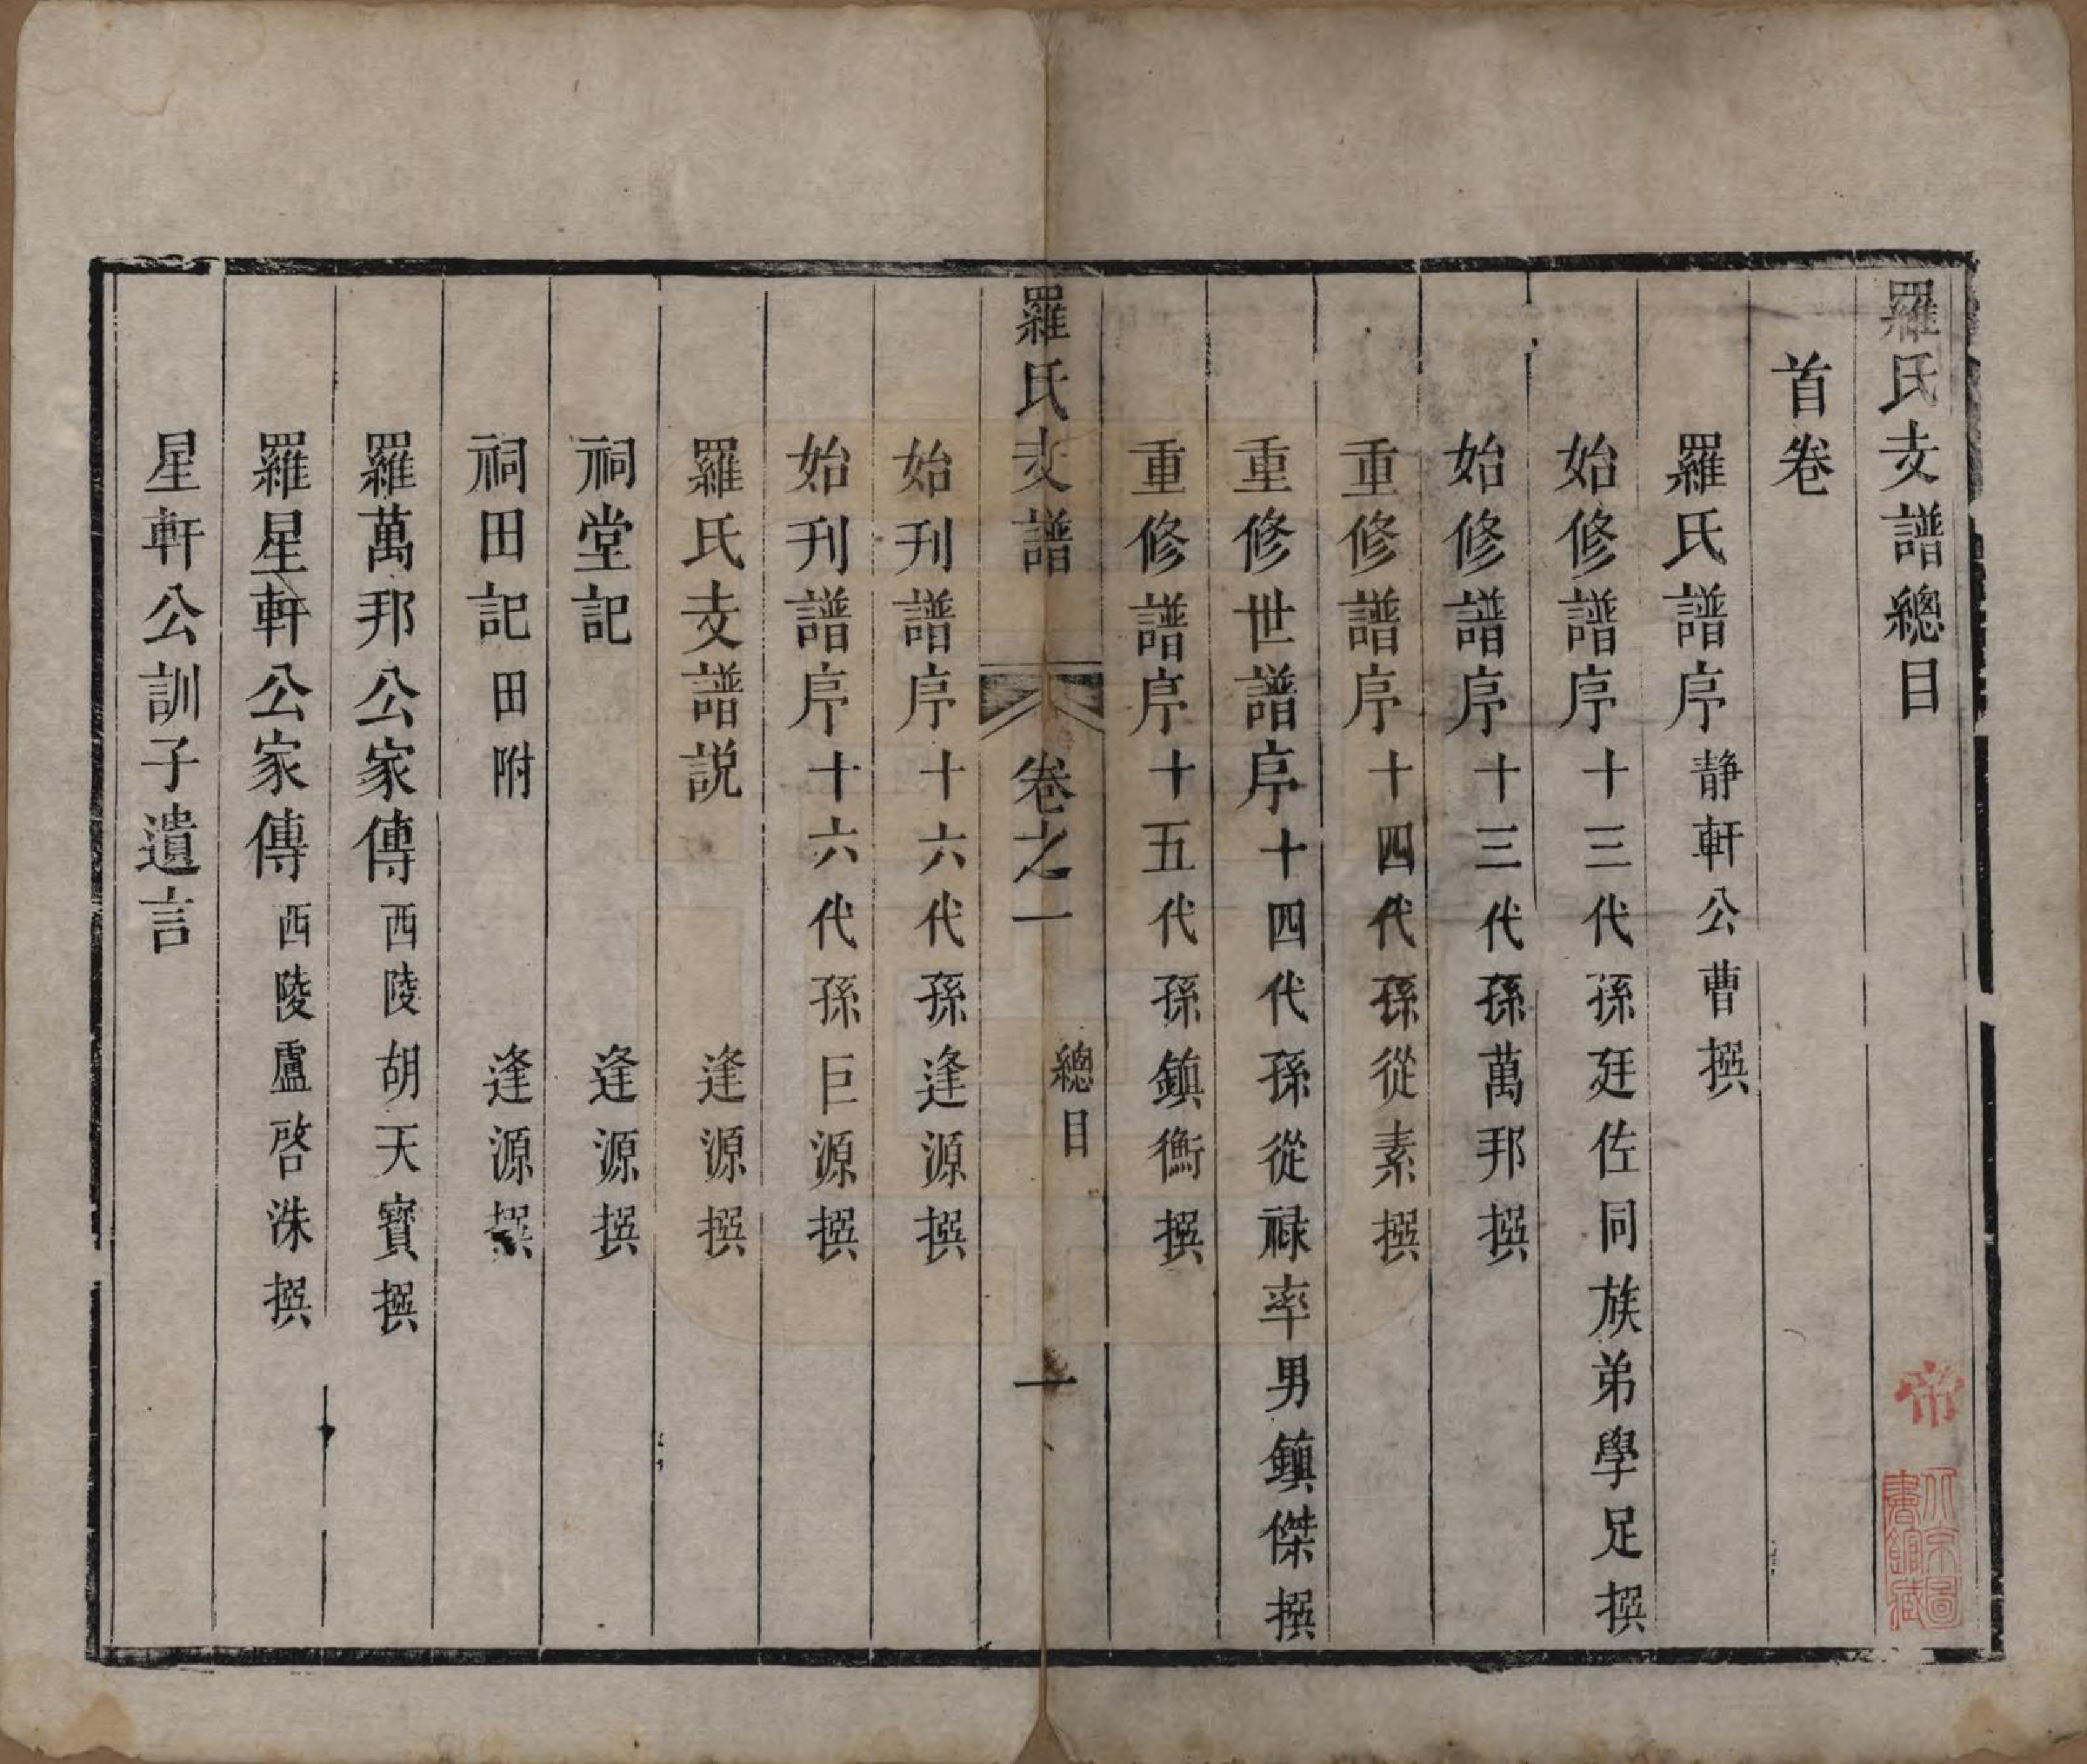 羅氏支譜總目
首卷
羅氏譜序 靜軒公曹撰
始修譜序 十三代孫廷佐同族弟學足撰
始修譜序 十三代孫萬邦撰
重修譜序 十四代孫從素撰
重修世譜序 十四代孫從祿率男鎮傑撰
重修譜序 十五代孫鎮衡撰
羅氏支譜 卷之一 總目 一
始刊譜序 十六代孫逢源撰
始刊譜序 十六代孫巨源撰
羅氏支譜説 逢源撰
祠堂記 逢源撰
祠田記 田附 逢源撰
羅萬邦公家傳 西陵胡天寶撰
羅星軒公家傳 西陵盧啓洙撰
星軒公訓子遺言
北京圖書館藏